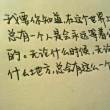 我要你知道,在这个世界上
总有一个人是会永远等着你
的。无论什么时候,无论
什么地方,总会有这么一个